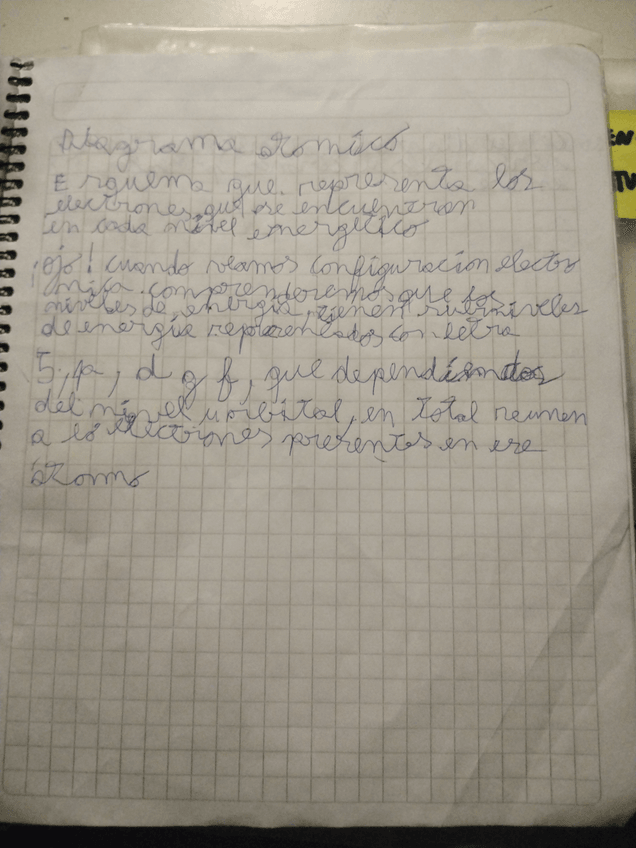 Diagrama atomico
Esquema que representa los
electrones que se encuentran
en cada nivel energetico
¡ojo! cuando veamos configuracion electro
nica comprenderemos que los
niveles de energia, tienen subniveles
de energia representados con letra
S, p, d y f, que dependiendo
del nivel u orbital, en total reunen
a los electrones presentes en ese
átomo
EN
TV